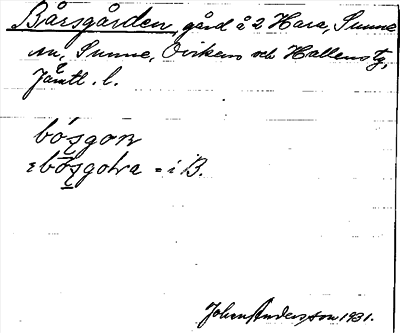 Bårsgården, gård å 2 Hara, Sunne
sn, Sunne, Ovikens och Hallens tg,
Jämtl. l.
bósgon
bósgotra = i B.
John Andersson 1931.